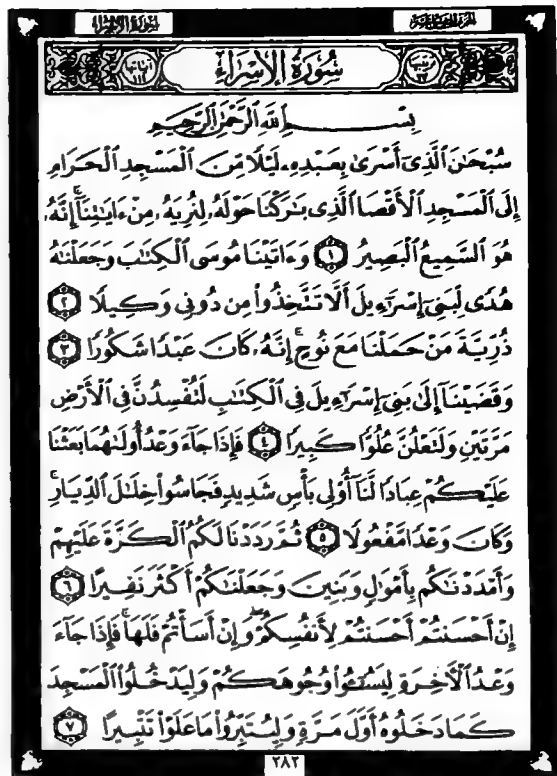 سُورَةُ الإِسْرَاءِ
الجزء الخامس عشر
سُورَةُ الْإِسْرَاءِ
بِسْمِ ٱللَّهِ ٱلرَّحْمَٰنِ ٱلرَّحِيمِ
سُبْحَٰنَ ٱلَّذِىٓ أَسْرَىٰ بِعَبْدِهِۦ لَيْلًا مِّنَ ٱلْمَسْجِدِ ٱلْحَرَامِ
إِلَى ٱلْمَسْجِدِ ٱلْأَقْصَا ٱلَّذِى بَٰرَكْنَا حَوْلَهُۥ لِنُرِيَهُۥ مِنْ ءَايَٰتِنَآ ۚ إِنَّهُۥ
هُوَ ٱلسَّمِيعُ ٱلْبَصِيرُ ١ وَءَاتَيْنَا مُوسَى ٱلْكِتَٰبَ وَجَعَلْنَٰهُ
هُدًى لِّبَنِىٓ إِسْرَٰٓءِيلَ أَلَّا تَتَّخِذُوا۟ مِن دُونِى وَكِيلًا ٢
ذُرِّيَّةَ مَنْ حَمَلْنَا مَعَ نُوحٍ ۚ إِنَّهُۥ كَانَ عَبْدًا شَكُورًا ٣
وَقَضَيْنَآ إِلَىٰ بَنِىٓ إِسْرَٰٓءِيلَ فِى ٱلْكِتَٰبِ لَتُفْسِدُنَّ فِى ٱلْأَرْضِ
مَرَّتَيْنِ وَلَتَعْلُنَّ عُلُوًّا كَبِيرًا ٤ فَإِذَا جَآءَ وَعْدُ أُولَىٰهُمَا بَعَثْنَا
عَلَيْكُمْ عِبَادًا لَّنَآ أُو۟لِى بَأْسٍ شَدِيدٍ فَجَاسُوا۟ خِلَٰلَ ٱلدِّيَارِ ۚ
وَكَانَ وَعْدًا مَّفْعُولًا ٥ ثُمَّ رَدَدْنَا لَكُمُ ٱلْكَرَّةَ عَلَيْهِمْ
وَأَمْدَدْنَٰكُم بِأَمْوَٰلٍ وَبَنِينَ وَجَعَلْنَٰكُمْ أَكْثَرَ نَفِيرًا ٦
إِنْ أَحْسَنتُمْ أَحْسَنتُمْ لِأَنفُسِكُمْ ۖ وَإِنْ أَسَأْتُمْ فَلَهَا ۚ فَإِذَا جَآءَ
وَعْدُ ٱلْءَاخِرَةِ لِيَسُۥٓـُٔوا۟ وُجُوهَكُمْ وَلِيَدْخُلُوا۟ ٱلْمَسْجِدَ
كَمَا دَخَلُوهُ أَوَّلَ مَرَّةٍ وَلِيُتَبِّرُوا۟ مَا عَلَوْا۟ تَتْبِيرًا ٧
٢٨٢